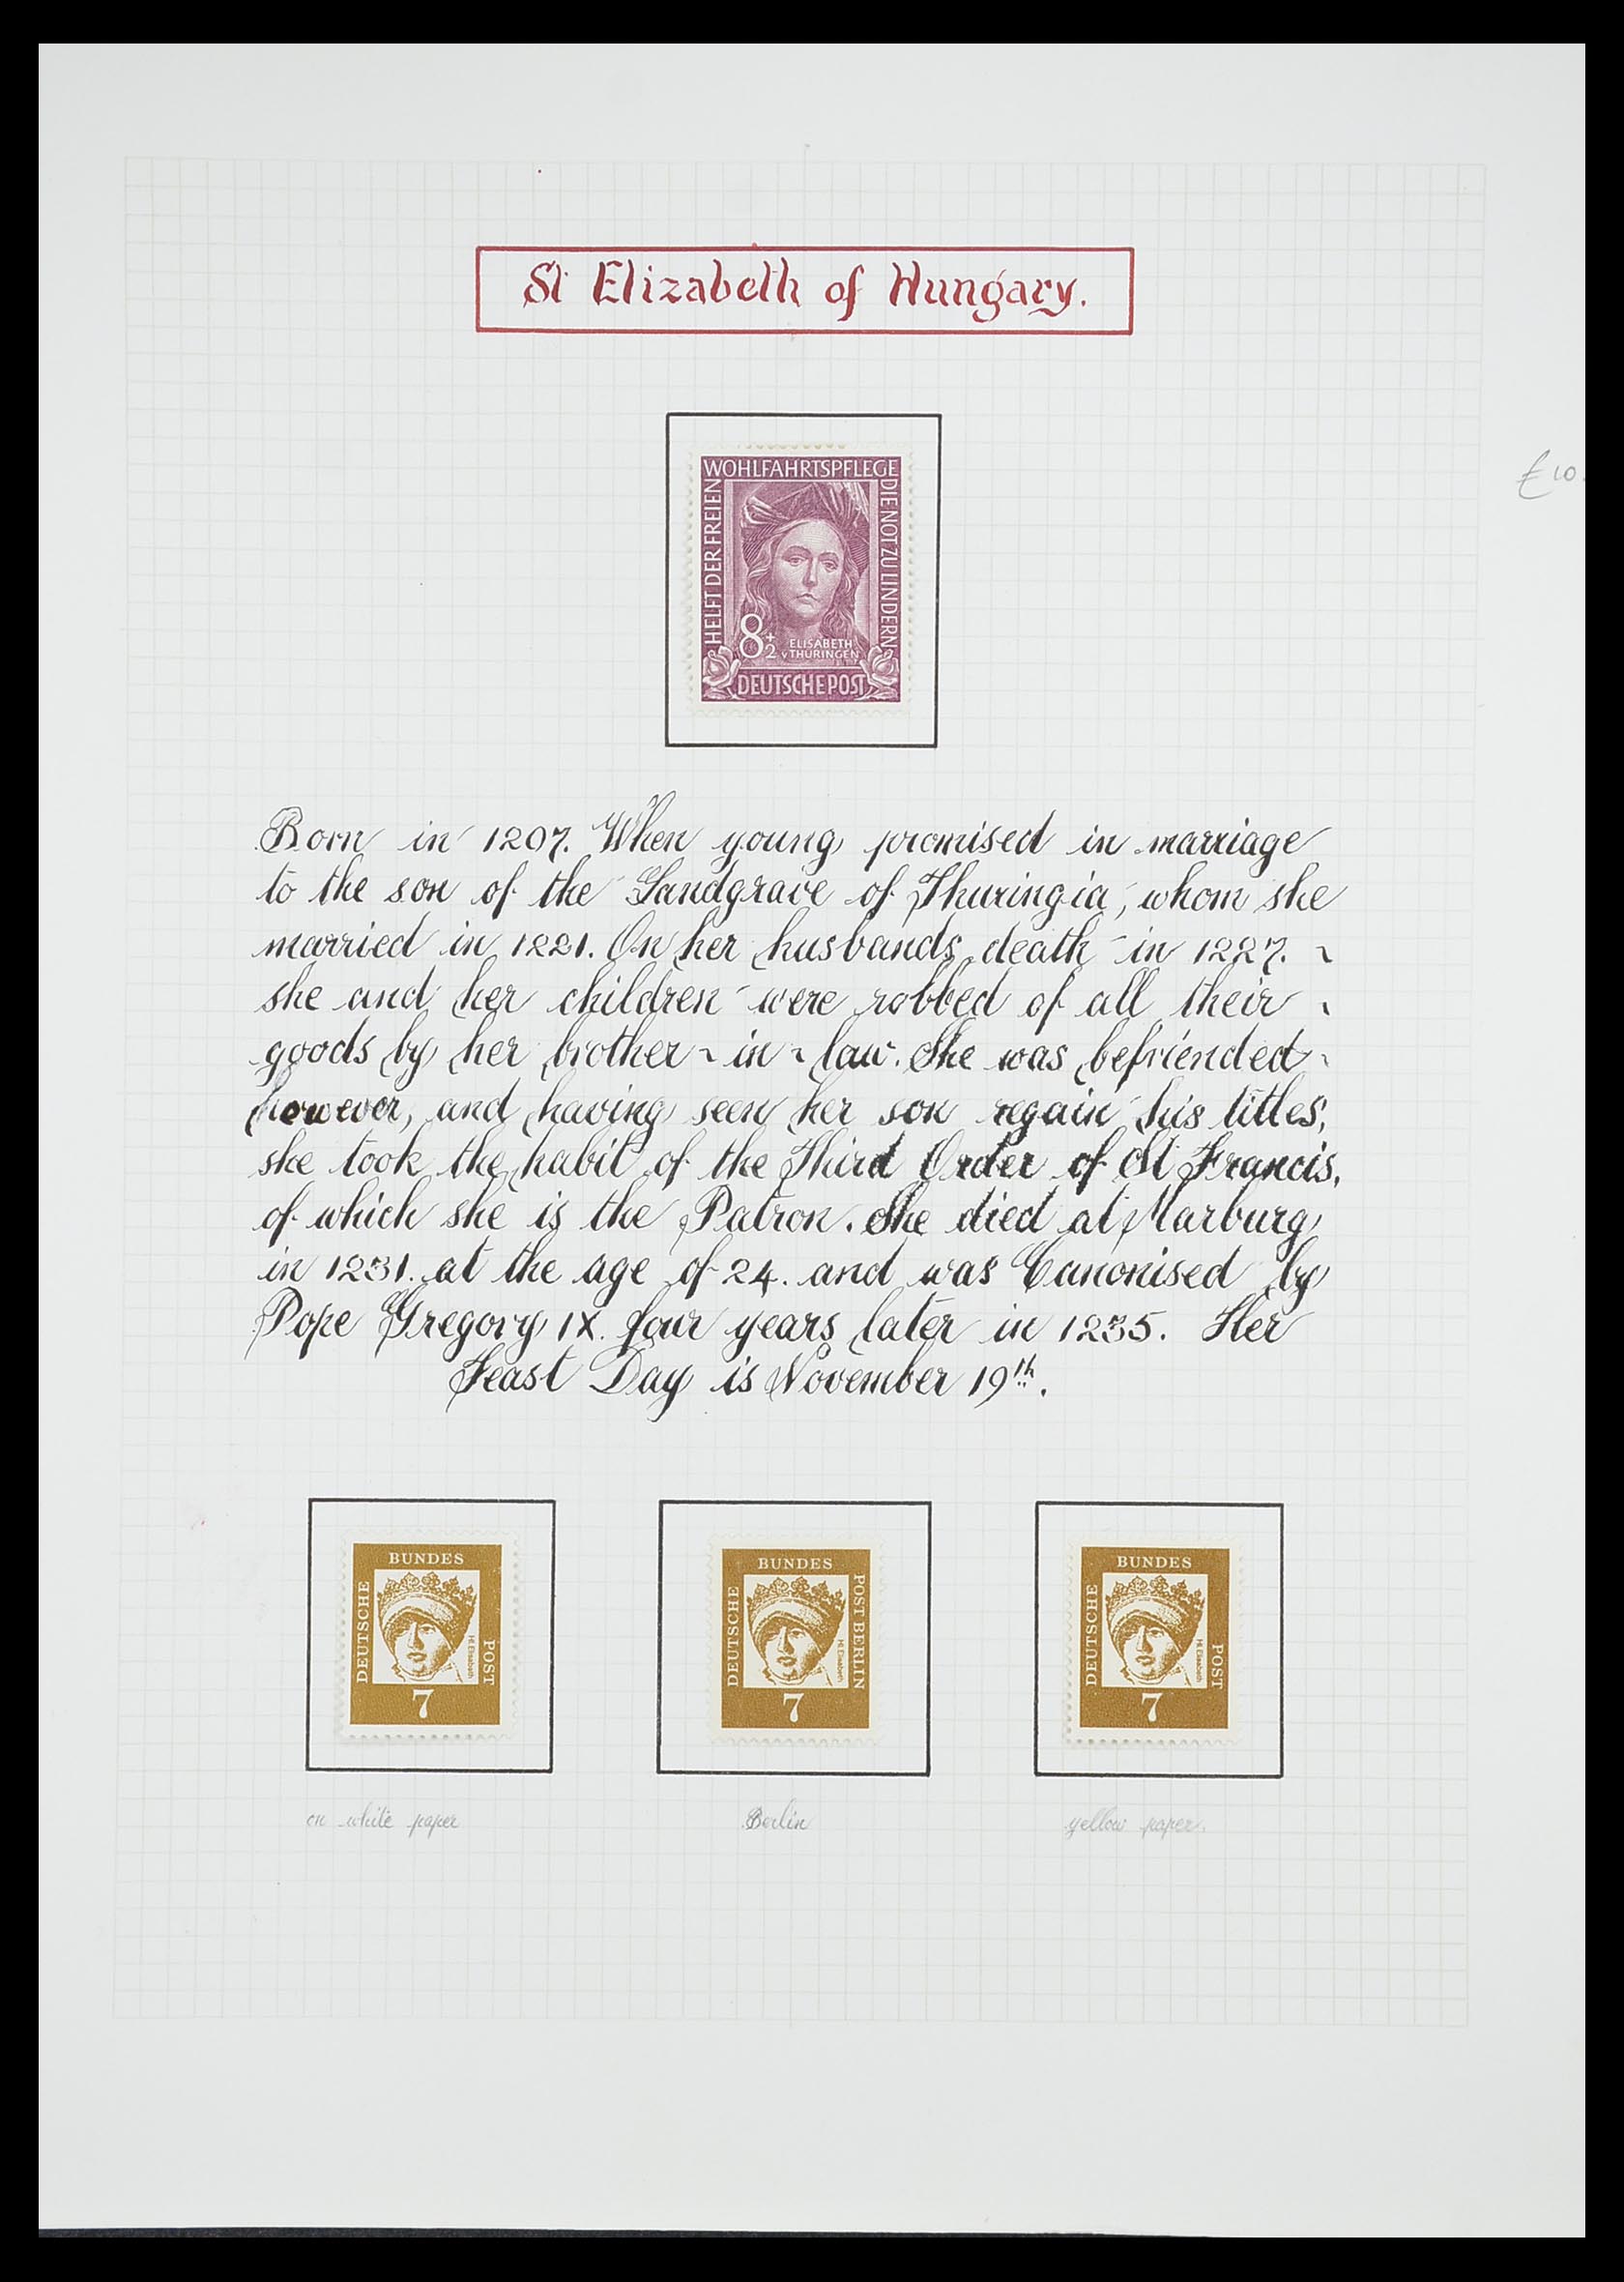 St Elizabeth of Hungary.
£10.
WOHLFAHRTSPFLEGE
HELFT DER FREIEN
DIE NOT ZU LINDERN
8+2
ELISABETH
v THÜRINGEN
DEUTSCHE POST
Born in 1207. When young promised in marriage
to the son of the Landgrave of Thuringia, whom she
married in 1221. On her husbands death in 1227. ~
she and her children were robbed of all their ~
goods by her brother ~ in ~ law. She was befriended ~
however, and having seen her son regain his titles,
she took the habit of the Third Order of St Francis,
of which she is the Patron. She died at Marburg
in 1231. at the age of 24. and was Canonised by
Pope Gregory IX. four years later in 1235. Her
Feast Day is November 19th.
DEUTSCHE
BUNDES
POST
Hl. Elisabeth
7
DEUTSCHE
BUNDES
POST BERLIN
Hl. Elisabeth
7
DEUTSCHE
BUNDES
POST
Hl. Elisabeth
7
on white paper
Berlin
yellow paper.